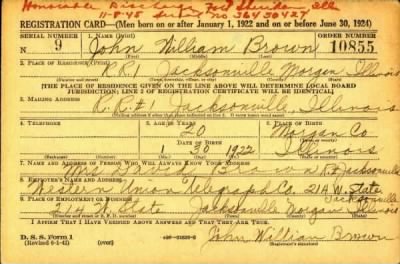 Honorable Discharge Fort Sheridan Ill
11-8-45 No 36430427
REGISTRATION CARD—(Men born on or after January 1, 1922 and on or before June 30, 1924)
SERIAL NUMBER 1. NAME (Print) ORDER NUMBER
9 John William Brown 10855
(First) (Middle) (Last)
2. PLACE OF RESIDENCE (Print)
R.R.1 Jacksonville, Morgan, Illinois
[THE PLACE OF RESIDENCE GIVEN ON THE LINE ABOVE WILL DETERMINE LOCAL BOARD
JURISDICTION; LINE 2 OF REGISTRATION CERTIFICATE WILL BE IDENTICAL]
3. MAILING ADDRESS
R.R.#1 Jacksonville, Illinois
4. TELEPHONE 5. AGE IN YEARS 6. PLACE OF BIRTH
20 Morgan Co
DATE OF BIRTH
1 30 1922 Illinois
7. NAME AND ADDRESS OF PERSON WHO WILL ALWAYS KNOW YOUR ADDRESS
Mrs David Brown Jacksonville
8. EMPLOYER'S NAME AND ADDRESS
Western Union Telegraph Co. 214 W. State
Jacksonville
9. PLACE OF EMPLOYMENT OR BUSINESS
214 W. State Jacksonville Morgan Illinois
(Number and street or R. F. D. number) (Town) (County) (State)
I AFFIRM THAT I HAVE VERIFIED ABOVE ANSWERS AND THAT THEY ARE TRUE.
D. S. S. Form 1
(Revised 6-1-42) (over) John William Brown
(Registrant's signature)